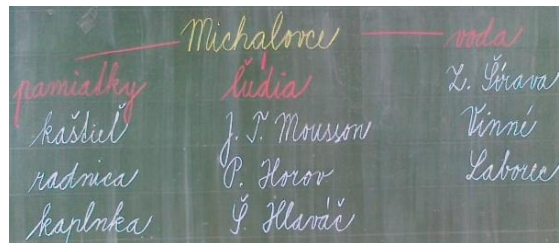 Michalovce
pamiatky
kaštieľ
radnica
kaplnka
ľudia
J. T. Mousson
P. Horov
Š. Hlaváč
voda
Z. Šírava
Vinné
Laborec